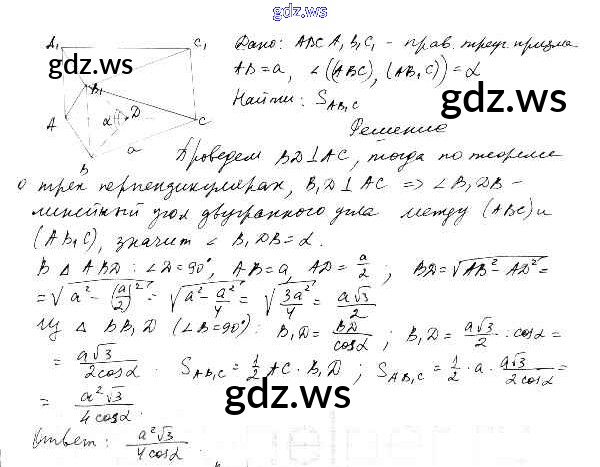 gdz.ws
A₁ C₁ B₁ A D C B α a
gdz.ws
Дано: ABCA₁B₁C₁ - прав. треуг. призма
AB = a, ∠((ABC), (AB₁C)) = α
gdz.ws
Найти: S_AB₁C
Решение
Проведем BD⊥AC, тогда по теореме
о трех перпендикулярах, B₁D⊥AC => ∠B₁DB -
линейный угол двугранного угла между (ABC) и
(AB₁C), значит ∠B₁DB = α.
В △ABD: ∠D = 90°, AB = a, AD = a/2; BD = √(AB² - AD²) =
= √(a² - (a/2)²) = √(a² - a²/4) = √(3a²/4) = a√3/2
Из △BB₁D (∠B = 90°): B₁D = BD/cosα; B₁D = a√3/2 : cosα =
= a√3/2cosα. S_AB₁C = 1/2 AC · B₁D; S_AB₁C = 1/2 · a · a√3/2cosα =
= a²√3/4cosα.
gdz.ws
Ответ: a²√3/4cosα.
gdz.ws